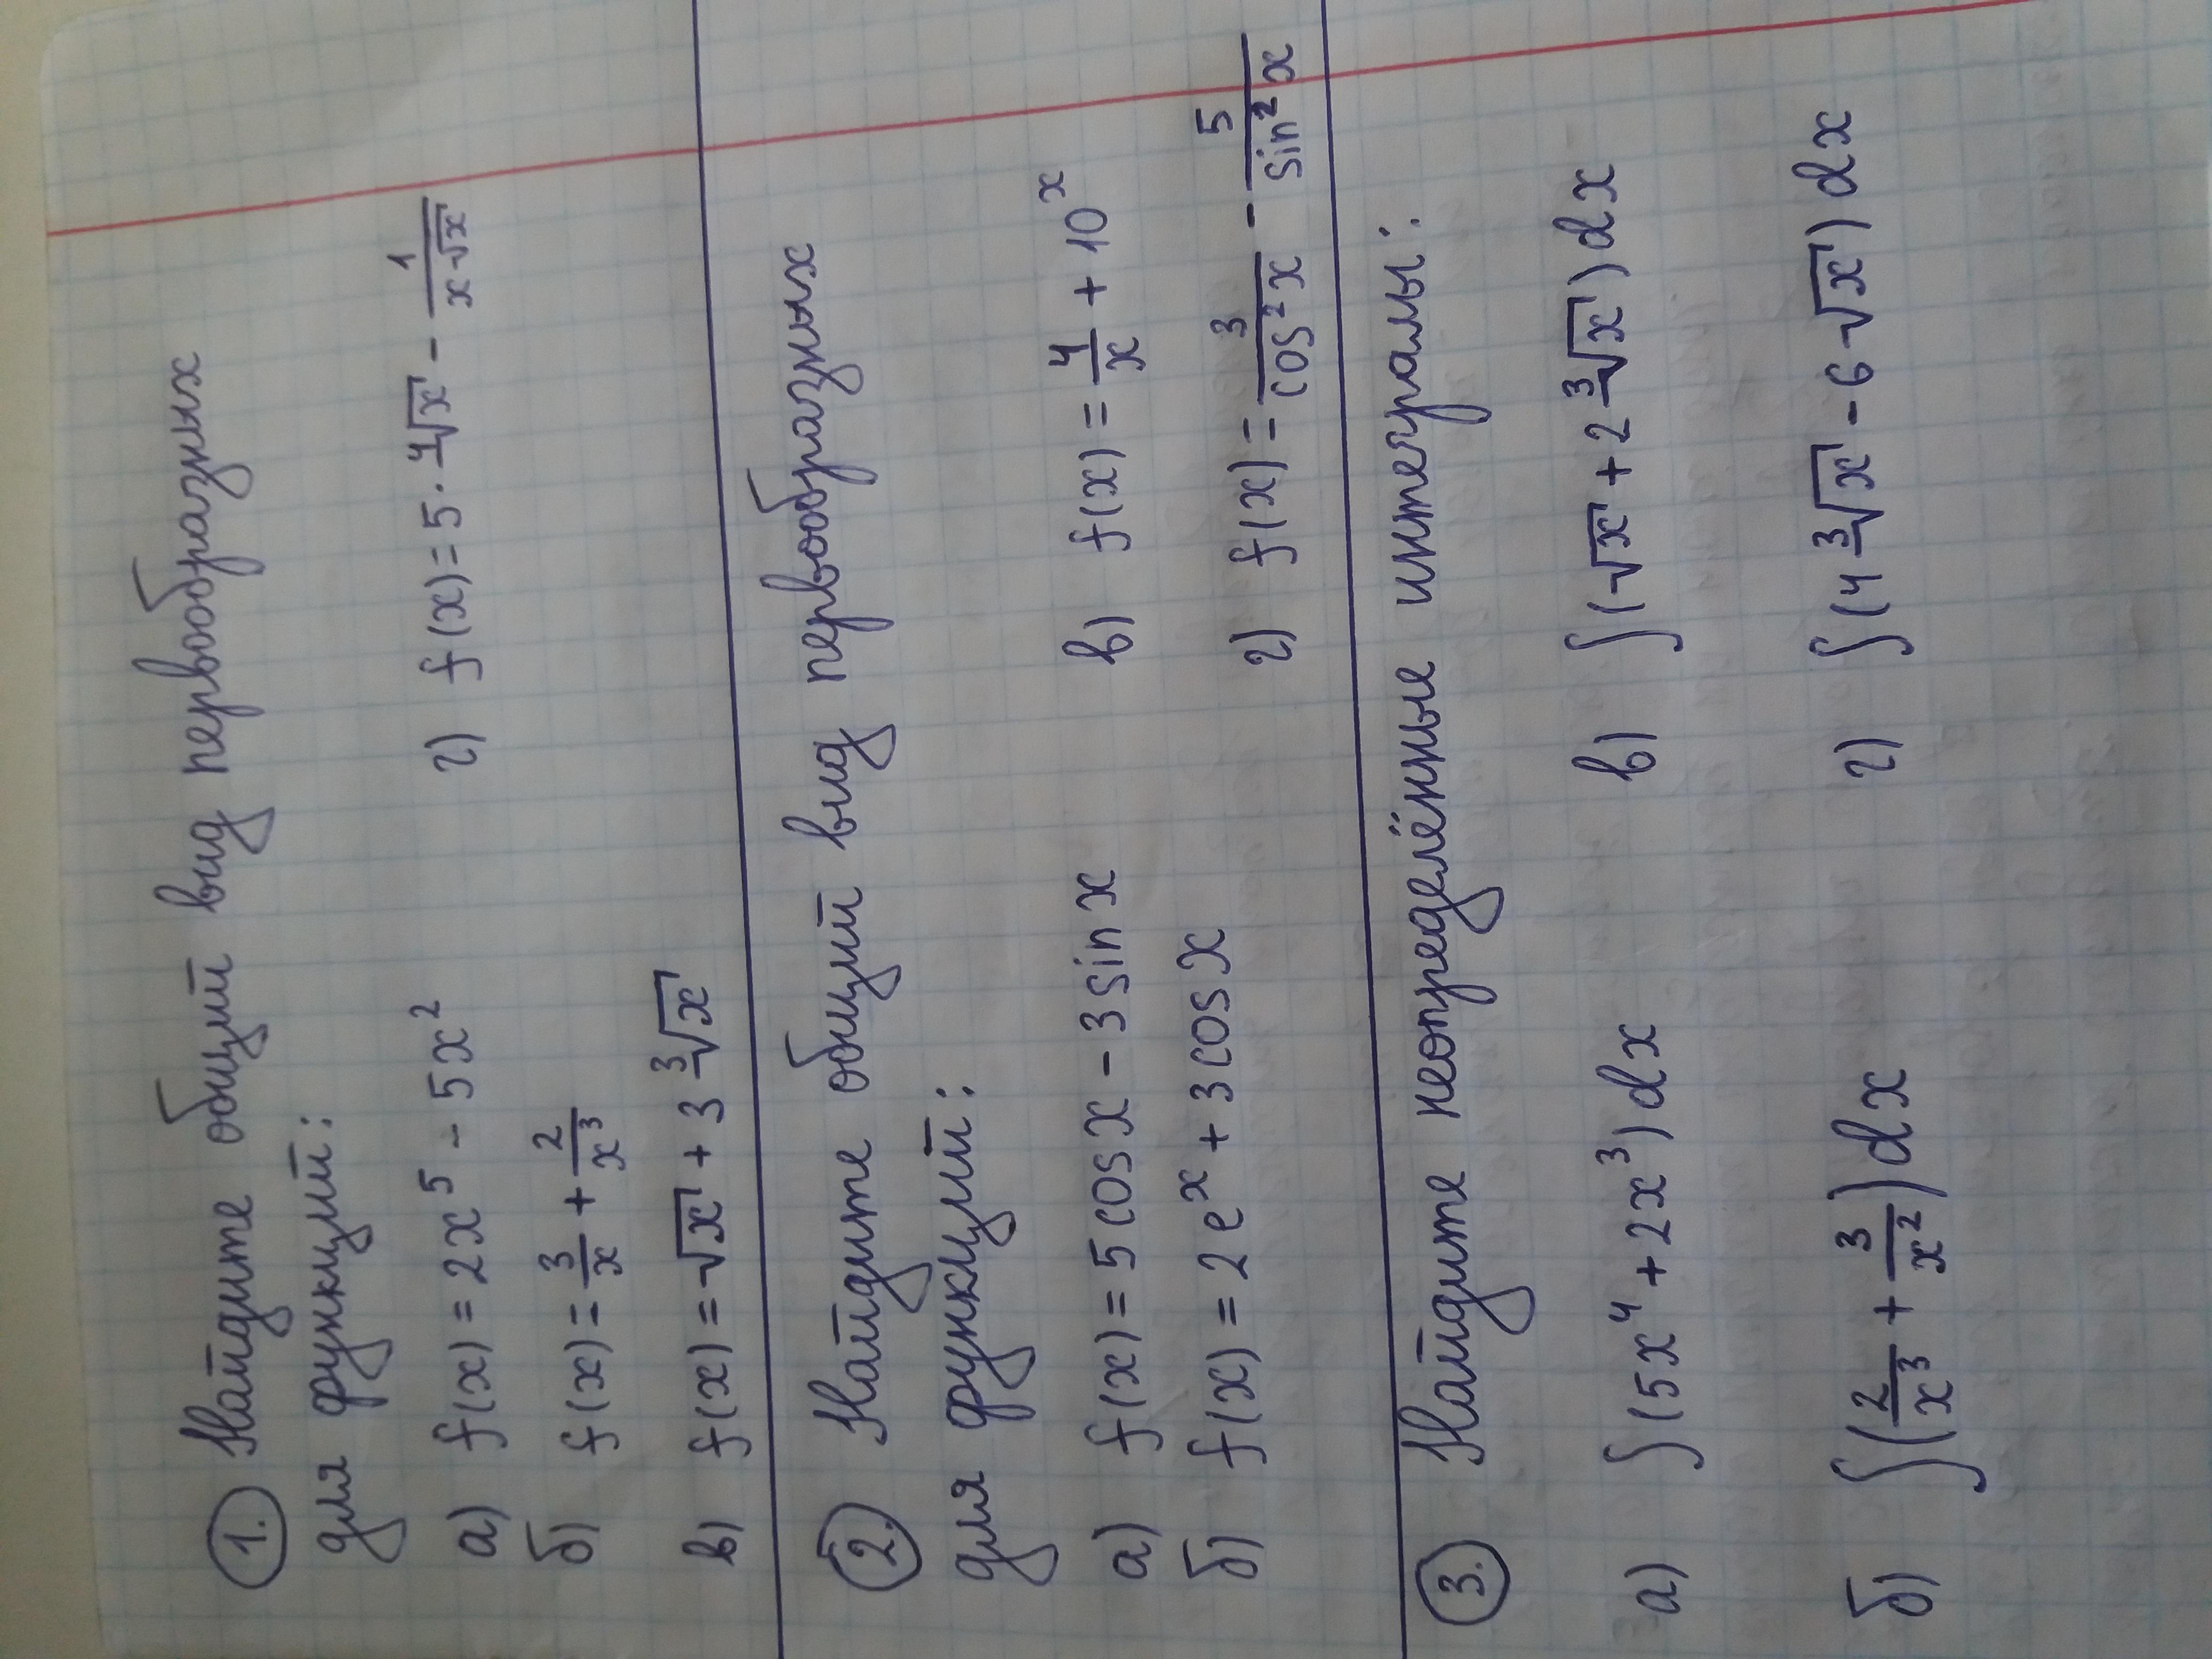 1. Найдите общий вид первообразных
для функций:
а) f(x) = 2x⁵ - 5x²
г) f(x) = 5 · ⁴√x - 1/(x·√x)
б) f(x) = 3/x + 2/x³
в) f(x) = √x + 3 ³√x
2. Найдите общий вид первообразных
для функций:
а) f(x) = 5 cos x - 3 sin x
в) f(x) = 4/x + 10ˣ
б) f(x) = 2eˣ + 3 cos x
г) f(x) = 3/cos²x - 5/sin²x
3. Найдите неопределённые интегралы:
а) ∫(5x⁴ + 2x³) dx
в) ∫(√x + 2 ³√x) dx
б) ∫(2/x³ + 3/x²) dx
г) ∫(4 ³√x - 6 √x) dx